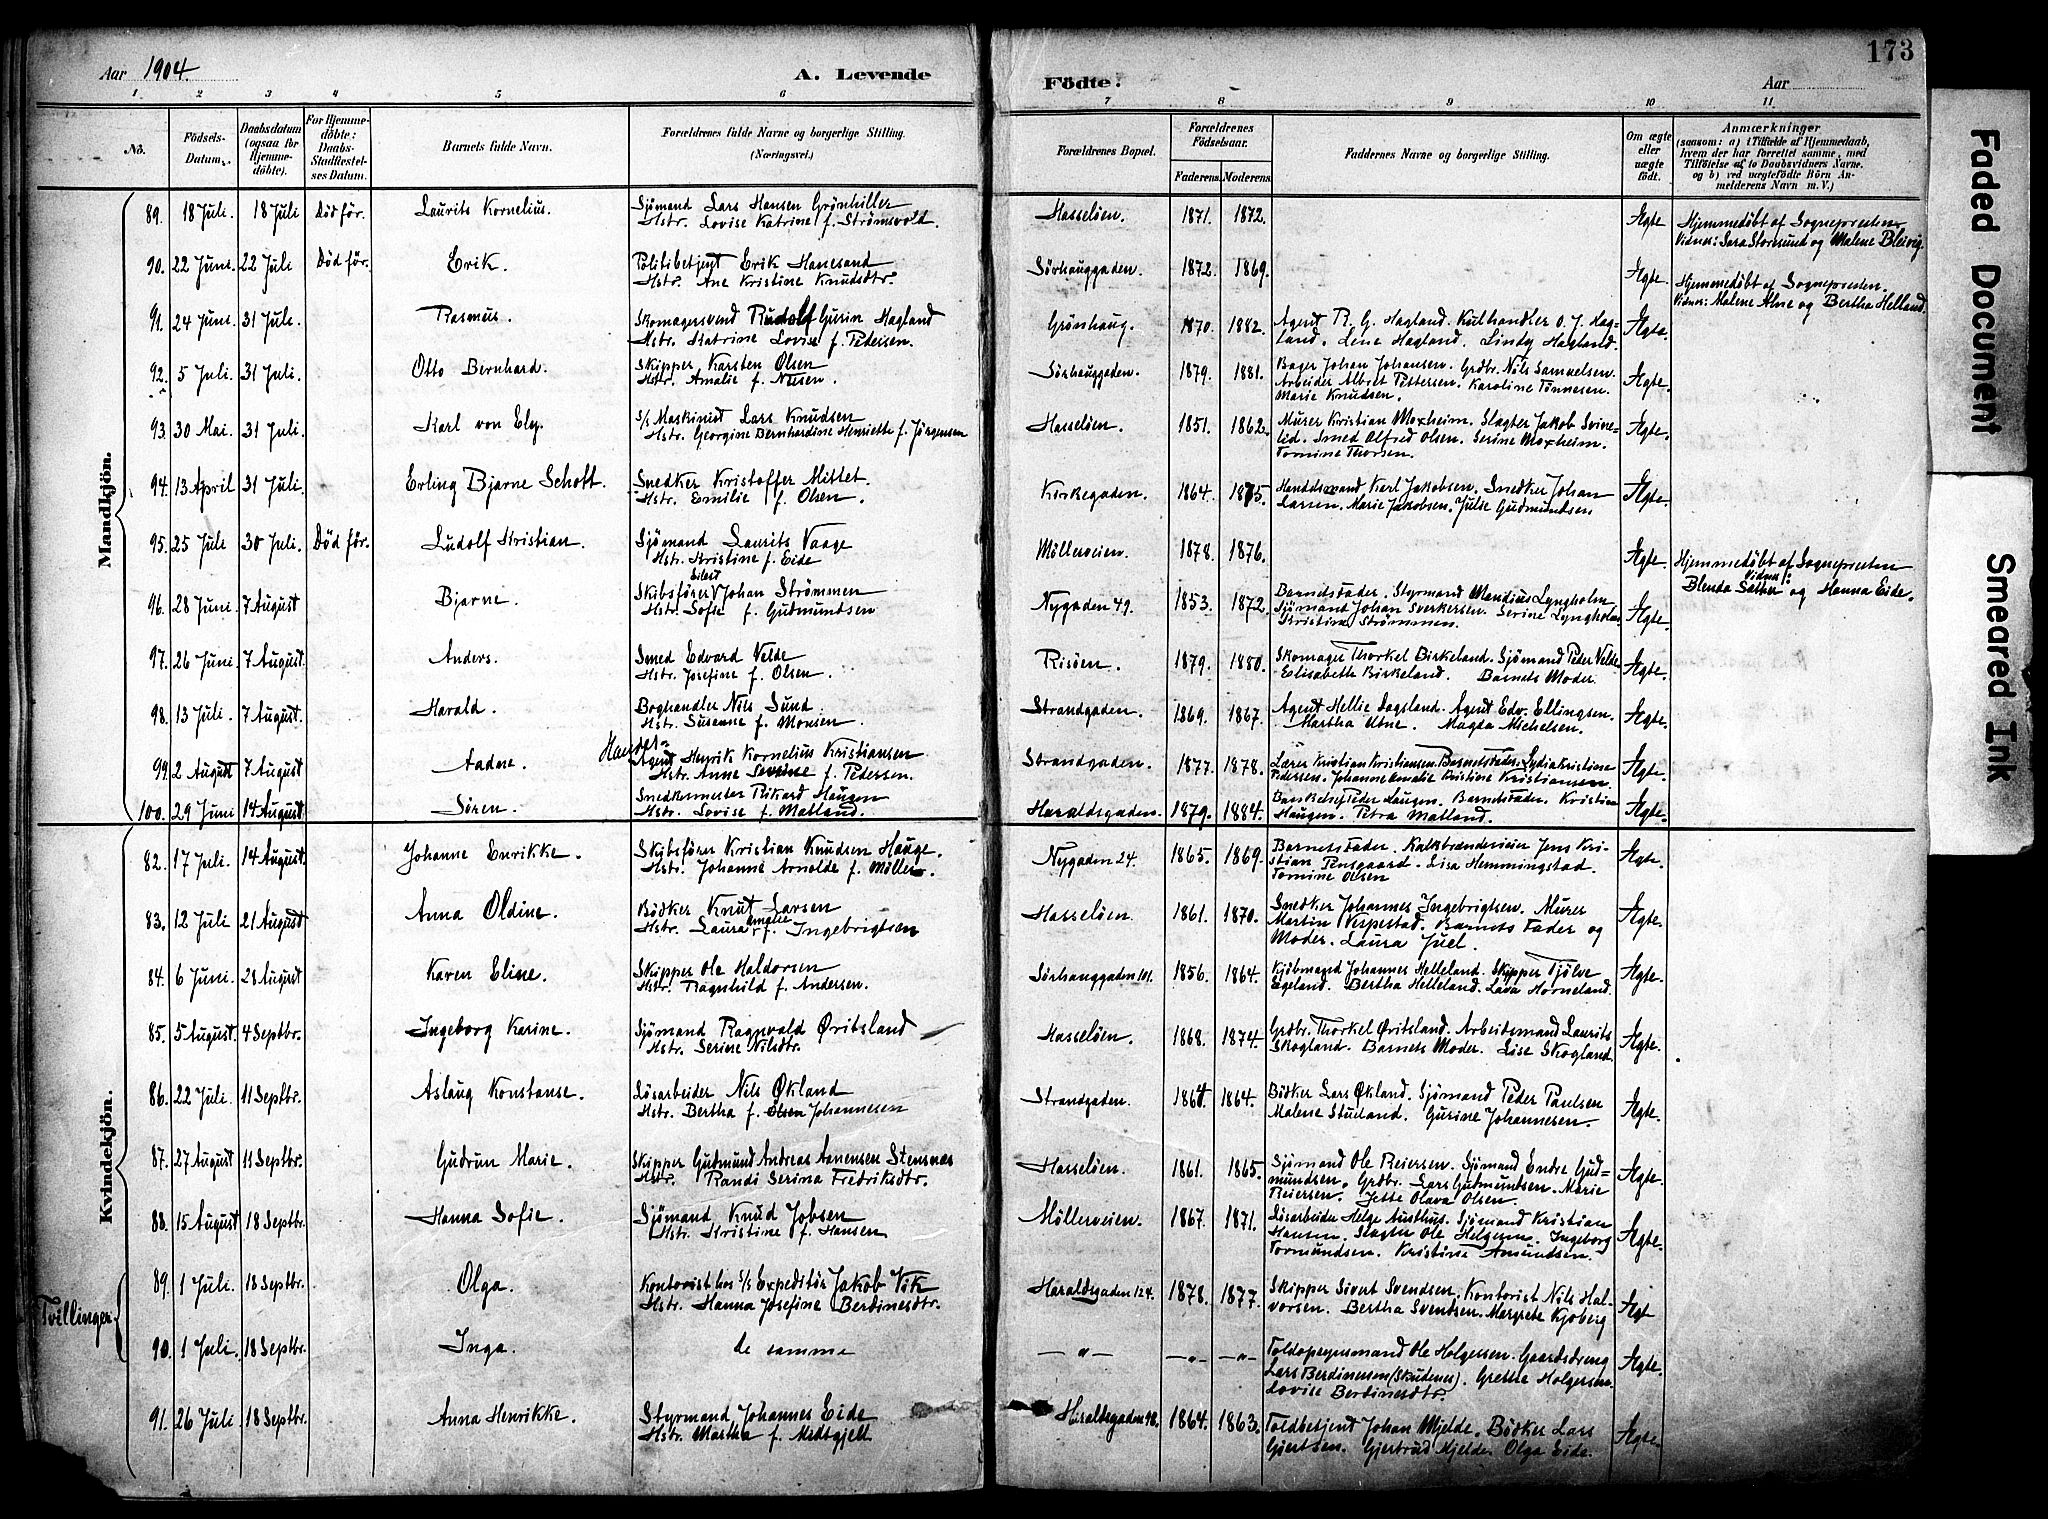 Aar 1904. A. Levende Födte. Aar 173
1 2 3 4 5 6 7 8 9 10 11
No. Födsels-Datum. Daabsdatum (ogsaa for Hjemmedöbte). For Hjemmedöbte: Daabs-Stadfæstelses Datum. Barnets fulde Navn. Forældrenes fulde Navne og borgerlige Stilling. (Næringsvei.) Forældrenes Bopæl. Forældrenes Födselsaar. Faderens. Moderens. Faddernes Navne og borgerlige Stilling. Om ægte eller uægte födt. Anmærkninger (saasom: a) i Tilfælde af Hjemmedaab, hvem der har forrettet samme, med Tilföielse af to Daabsvidners Navne. og b) ved uægtefödte Börn Anmelderens Navn m. V.)
Mandkjön.
89. 18 Juli. 18 Juli Död för. Laurits Kornelius. Sjömand Lars Hansen Grönhiller
Hstr. Lovise Katrine f. Strømsvold Hasseløen. 1871. 1872. Ægte Hjemmedöbt af Sognepresten
Vidner: Sara Storesund og Malene Bleivig.
90. 22 Juni. 22 Juli Död för. Erik. Politibetjent Erik Hanesand
Hstr. Ane Kristine Knudsdtr. Sørhauggaden. 1872. 1869. Ægte. Hjemmedöbt af Sognepresten.
Vidner: Malene Alne og Bertha Helland.
91. 24 Juni. 31 Juli. Rasmus. Skomagersvend Rudolf Gurin Hagland
Hstr. Katrine Lovise f. Pedersen. Grønhaug. 1870. 1882. Agent R. G. Hagland. Kulhandler O. J. Hag-
land. Lene Hagland. Lindy Hagland. Ægte.
92. 5 Juli. 31 Juli. Otto Bernhard. Skipper Karsten Olsen
Hstr. Amalie f. Nilsen. Sørhauggaden. 1879. 1881. Bager Johan Johansen. Grdbr. Nils Samuelsen.
Arbeider Albret Pettersen. Karoline Tønnesen.
Marie Knudsen. Ægte.
93. 30 Mai. 31 Juli. Karl von Ely. S/s Maskinist Lars Knudsen
Hstr. Georgine Bernhardine Henriette f. Jørgensen Hasseløen. 1851. 1862. Murer Kristian Moxheim. Slagter Jakob Svine-
lid. Smed Olfred Olsen. Serine Moxheim.
Tomine Thorsen. Ægte.
94. 13 April 31 Juli. Erling Bjarne Schott. Snedker Kristoffer Mittet
Hstr. Emilie f. Olsen. Kirkegaden. 1864. 1875. Handelsmand Karl Jakobsen. Snedker Johan
Larsen. Marie Jakobsen. Julie Gudmundsen Ægte.
95. 25 Juli 30 Juli. Död för. Ludolf Kristian. Sjömand Laurits Vaage
Hstr. Kristine f. Eide Möllerveien. 1878. 1876. Ægte. Hjemmedöbt af Sognepresten
Vidner:
Blenda Sæther og Hanna Eide.
96. 28 Juni. 7 August Bjarne. Skibsfører Johan Strømmen
Hstr. Sofie f. Gudmundsen Nygaden 49. 1853. 1872. Barnets Fader. Styrmand Mandius Lyngholm
Sjömand Johan Sverkersen. Serine Lyngholm
Kristine Strømmen. Ægte.
97. 26 Juni. 7 August. Anders. Smed Edvard Velde
Hstr. Josefine f. Olsen. Risöen. 1879. 1880. Skomager Thorkel Birkeland. Sjömand Peder Velde
Elisabeth Birkeland. Barnets Moder. Ægte.
98. 13 Juli. 7 August. Harald. Boghandler Nils Sund.
Hstr. Susanne f. Monsen. Strandgaden. 1869. 1867. Agent Hellie Dagsland. Agent Edv. Ellingsen.
Martha Utne. Magda Michelsen. Ægte.
99. 2 August 7 August Aadne. Handels-
Agent Henrik Kornelius Kristiansen
Hstr. Anne Severine f. Pedersen. Strandgaden. 1877. 1878. Lærer Kristian Kristiansen. Barnets Fader. Lydia Kristine
Pedersen. Johanne Amalie Kristine Kristiansen Ægte.
100. 29 Juni 14 August Sören. Snedkermester Rikard Haugen
Hstr. Lovise f. Matland. Haraldsgaden. 1879. 1884. Peder Haugen. Barnets Fader. Kristine
Haugen. Petra Matland. Ægte.
Kvindekjön.
82. 17 Juli. 14 August. Johanne Enrikke. Skibsfører Kristian Knudsen Hauge.
Hstr. Johanne Arnolde f. Möller. Nygaden 24. 1865. 1869. Barnets Fader. Kalkbrænderieier Jens Kri-
stian Pensgaard. Lisa Hemmingstad.
Tomine Olsen Ægte.
83. 12 Juli 21 August Anna Oldine. Bödker Knut Larsen
Hstr. Laura Amalie f. Ingebrigtsen Hasseløen. 1861. 1870. Snedker Johannes Ingebrigtsen. Murer
Martin Vespestad. Barnets Fader og
Moder. Laura Juel. Ægte.
84. 6 Juni. 28 August Karen Eline. Skipper Ole Haldorsen
Hstr. Ragnhild f. Andersen. Sørhauggaden 101. 1856. 1864. Kjöbmand Johannes Helleland. Skipper Tjölve
Egeland. Bertha Helleland. Lava Horneland. Ægte.
85. 5 August. 4 Septbr. Ingeborg Karine. Sjömand Ragnvald Øritsland
Hstr. Serine Nilsdtr. Hasseløen. 1868. 1874. Grdbr. Thorkel Øritsland. Arbeidsmand Laurits
Skogland. Barnets Moder. Lise Skogland. Ægte.
86. 22 Juli. 11 Septbr. Aslaug Konstanse. Løsarbeider Nils Økland
Hstr. Bertha f. Olsen Johannesen Strandgaden. 1864. 1864. Bödker Lars Økland. Sjömand Peder Paulsen
Malene Stueland. Gurine Johannesen. Ægte.
87. 27 August 11 Septbr. Gudrun Marie. Skipper Gudmund Andreas Aanensen Stensnæs
Hstr. Randi Serina Fredriksdtr. Hasseløen. 1861. 1865. Sjömand Ole Reiersen. Sjömand Endre Gud=
mundsen. Grdbr. Lars Gudmundsen. Marie
Reiersen. Jette Olava Olsen. Ægte.
88. 15 August 18 Septbr. Hanna Sofie. Sjömand Knud Jobsen
Hstr. Kristine f. Hansen Möllerveien. 1867. 1871. Løsarbeider Helge Austhus. Sjömand Kristian
Hansen. Slagter Ole Helgesen. Ingeborg
Tormundsen. Kristine Amundsen. Ægte.
Tvillinger.
89. 1 Juli. 18 Septbr. Olga. Kontorist hos S/s Expeditör Jakob Vik
Hstr. Hanna Josefine Berdinesdtr. Haraldsgaden 124. 1878. 1877. Skipper Sivert Svendsen. Kontorist Nils Hal-
vorsen. Bertha Svendsen. Margrete Kjoberg Ægt
90. 1 Juli. 18 Septbr. Inga. de samme — " — — " — — " — Toldopsynsmand Ole Holgersen. Gaardsdreng
Lars Berdinesen (Skudenes). Grethe Holgersen.
Lovise Berdinesdtr. Ægte.
91. 26 Juli 18 Septbr. Anna Henrikke. Styrmand Johannes Eide
Hstr. Martha f. Midtgjell Haraldsgaden 48. 1864. 1863. Toldbetjent Johan Mjelde. Bödker Lars
Gjertsen. Gjertrud Mjelde. Olga Eide. Ægte.
Faded Document
Smeared Ink